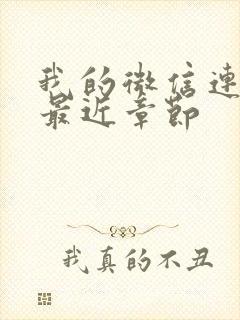 我的微信连
最近章节
我真的不丑